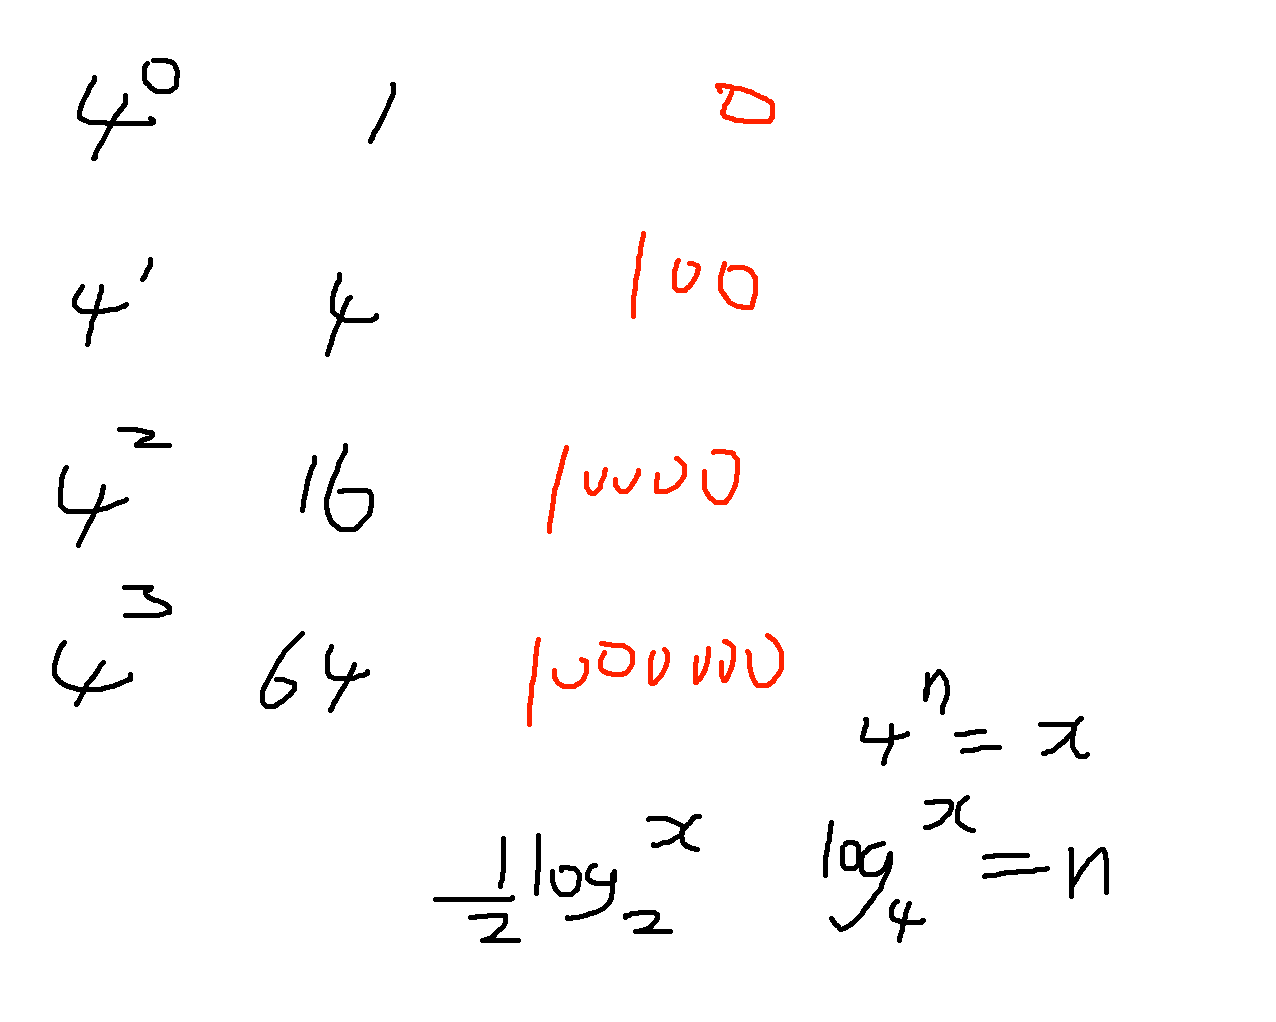 4⁰ 1 0
4¹ 4 100
4² 16 10000
4³ 64 1000000
4ⁿ = x
1/2 log₂ˣ log₄ˣ = n